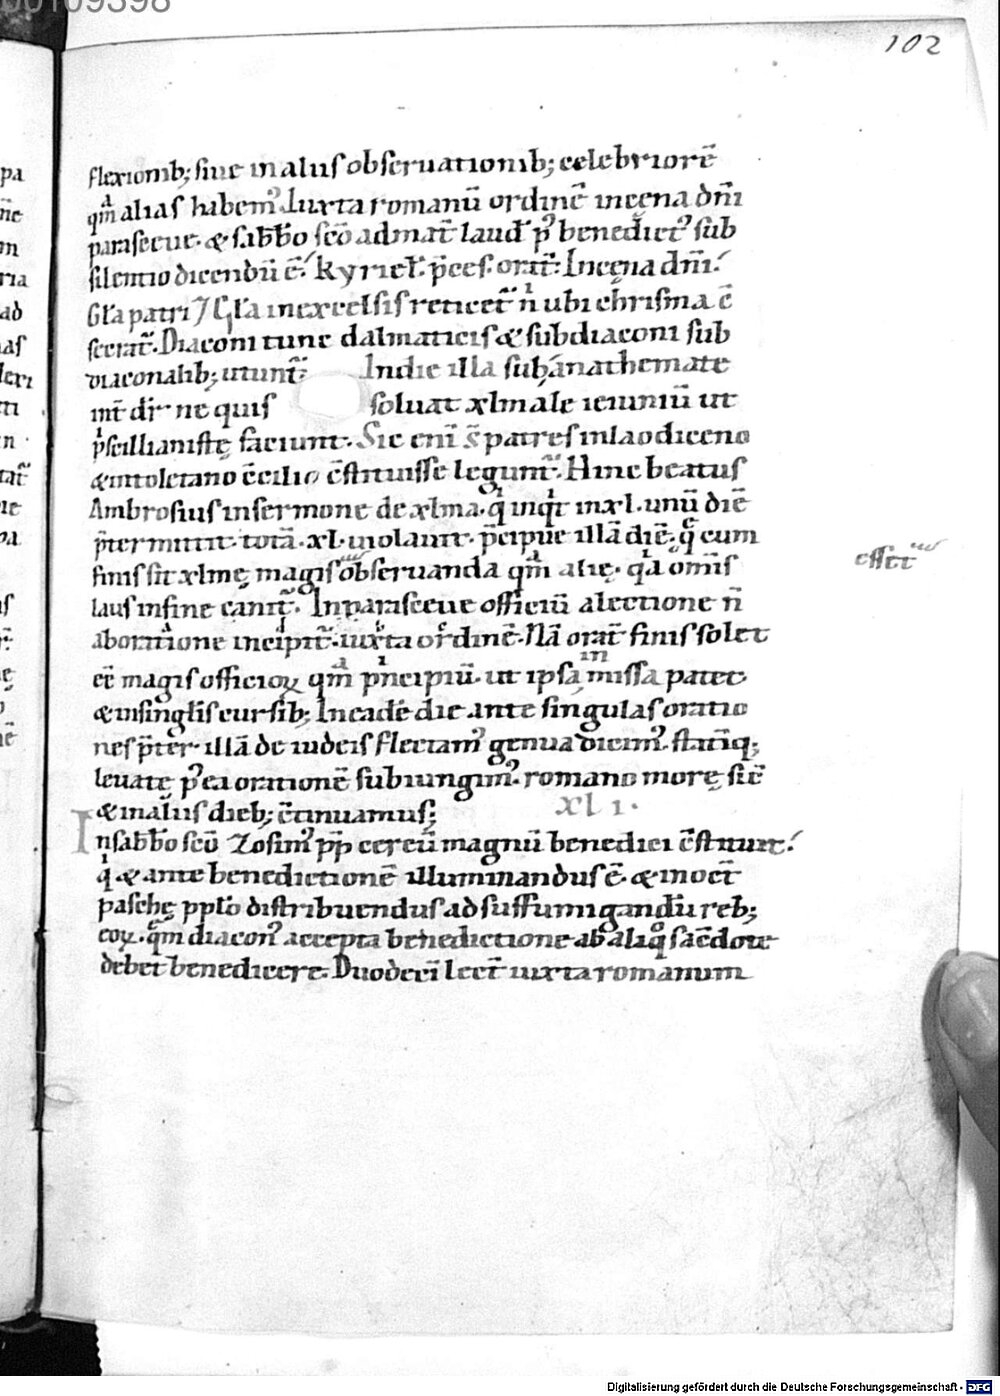 102
flexionib; siue in aliis obseruationib; celebriorē
qm̄ alias habem᾽. Iuxta romanū ordinē in cęna dn̄i
parasceue. & sabb̄o scō ad mat̄ laud p᾽ benedict᾽ sub
silentio dicendū ē. Kyriel̄. p̄ces. orat̄. In cęna dn̄i.
Gl̄a patri / Gl̄a in excelsis reticet᷑ n̄ ubi chrisma ē
secrat᷑. Diaconi tunc dalmaticis & subdiaconi sub
diaconalib; utunt᷑. In die illa sub anathemate
int̄ dic̄ ne quis soluat xlmale ieiuniū ut
p̄scillianistę faciunt. Sic eni s̄ patres in laodiceno
& in toletano c̄cilio c̄stituisse legunt᷑. Hinc beatus
Ambrosius in sermone de xlma. q̇ inqt̄ in xl. unū diē
p̄termittit. totā .xl. uiolauit. p̄cipue illā diē. q̄ cum
finis sit xlmę magis obseruanda qm̄ alię. qa om̄is
laus in fine canit᷑. In parasceue officiū a lectione n̄
ab oratione incipit᷑. iuxta ordinē. Nā orat̄ finis solet
eē magis officioꝝ qm̄ pncipiū. ut ipsa in missa patet
& in singlis cursib; In eadē die ante singulas oratio
nes p̄ter illā de iudeis flectam᾽ genua dicim᾽. statiq;
leuate p᾽ ea orationē subiungim᾽. romano morę sic̄
& in aliis dieb; c̄tinuamus;
xl i.
In sabb̄o scō Zosim᾽ pp̄ cereū magnū benedici c̄stituit.
q̇ & ante benedictionē illuminandus ē. & in oct̄
paschę pplo distribuendus ad suffumigandū reb;
eoꝝ. qm diacon᾽ accepta benedictione ab aliq̊ sac̄dote
debet benedicere. Duodeci lect̄ iuxta romanum